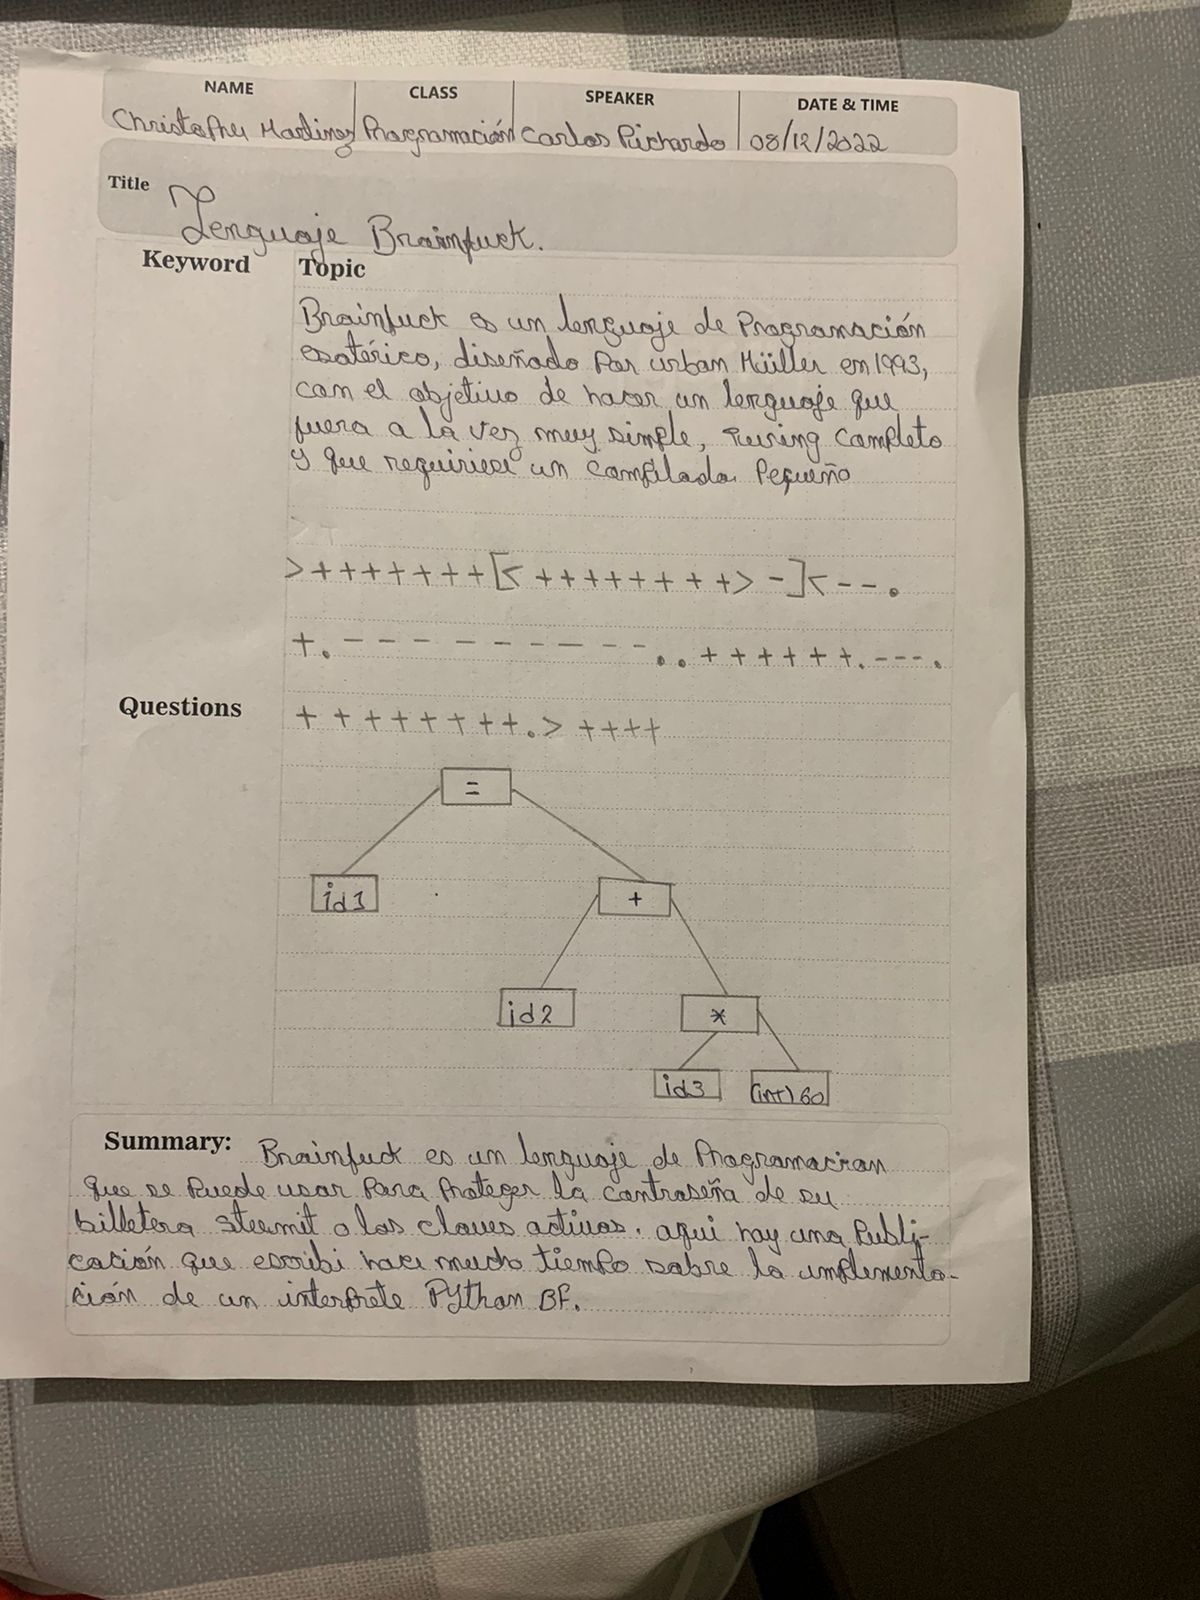 NAME CLASS SPEAKER DATE & TIME
Christopher Martinez Programación Carlos Pichardo 08/12/2022
Title
Lenguaje Brainfuck.
Keyword Topic
Brainfuck es un lenguaje de Programación
esotérico, diseñado Por urban Müller en 1993,
con el objetivo de hacer un lenguaje que
fuera a la vez muy simple, Turing Completo
y que requiriese un Compilador Pequeño
>+++++++[<++++++++>-]<--.
+.----------..++++++.---.
Questions
++++++++.>++++
=
id1
+
id2
*
id3 (int)60
Summary: Brainfuck es un lenguaje de Programacion
que se Puede usar Para Proteger la contraseña de su
billetera steemit o las claves activas. aqui hay una Publi-
cación que escribi hace mucho tiempo sobre la implementa-
ción de un interprete PYthon BF.